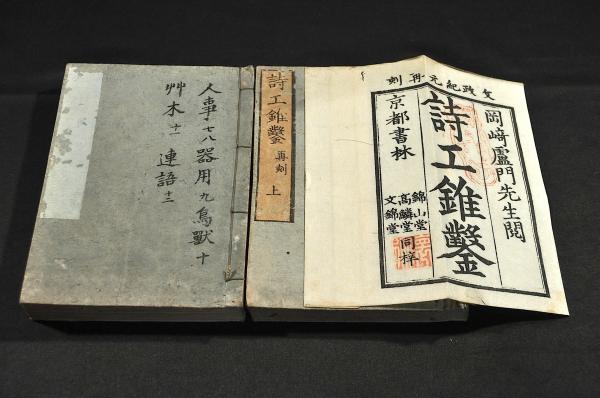 文政紀元再刻
岡崎廬門先生閲
詩工錐鑿
京都書林
錦山堂
高麟堂
文錦堂
同梓
詩工錐鑿 再刻 上
人事七八 器用九 鳥獸十
艸木十一 連語十二